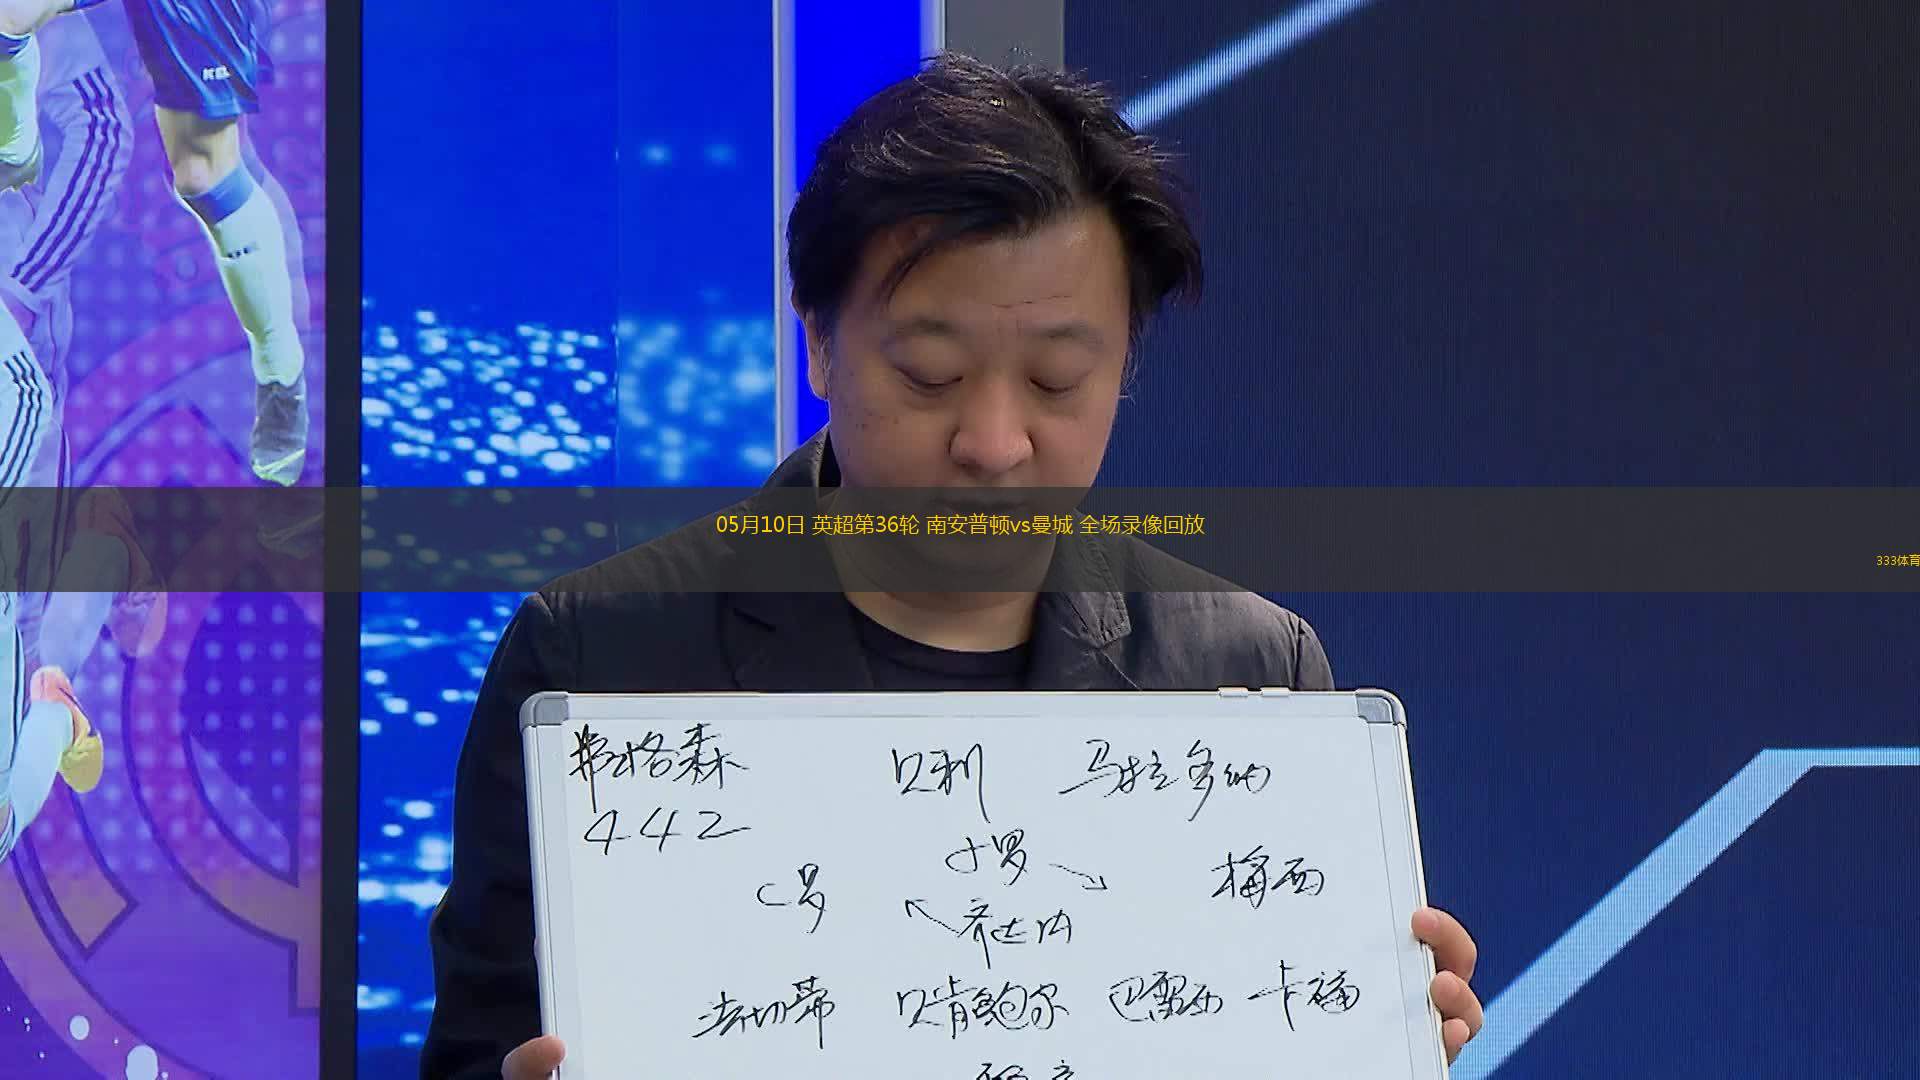 05月10日 英超第36轮 南安普顿vs曼城 全场录像回放
333体育
弗格森 贝利 马拉多纳
442
小罗
C罗 梅西
齐达内
法切蒂 贝肯鲍尔 巴雷西 卡福